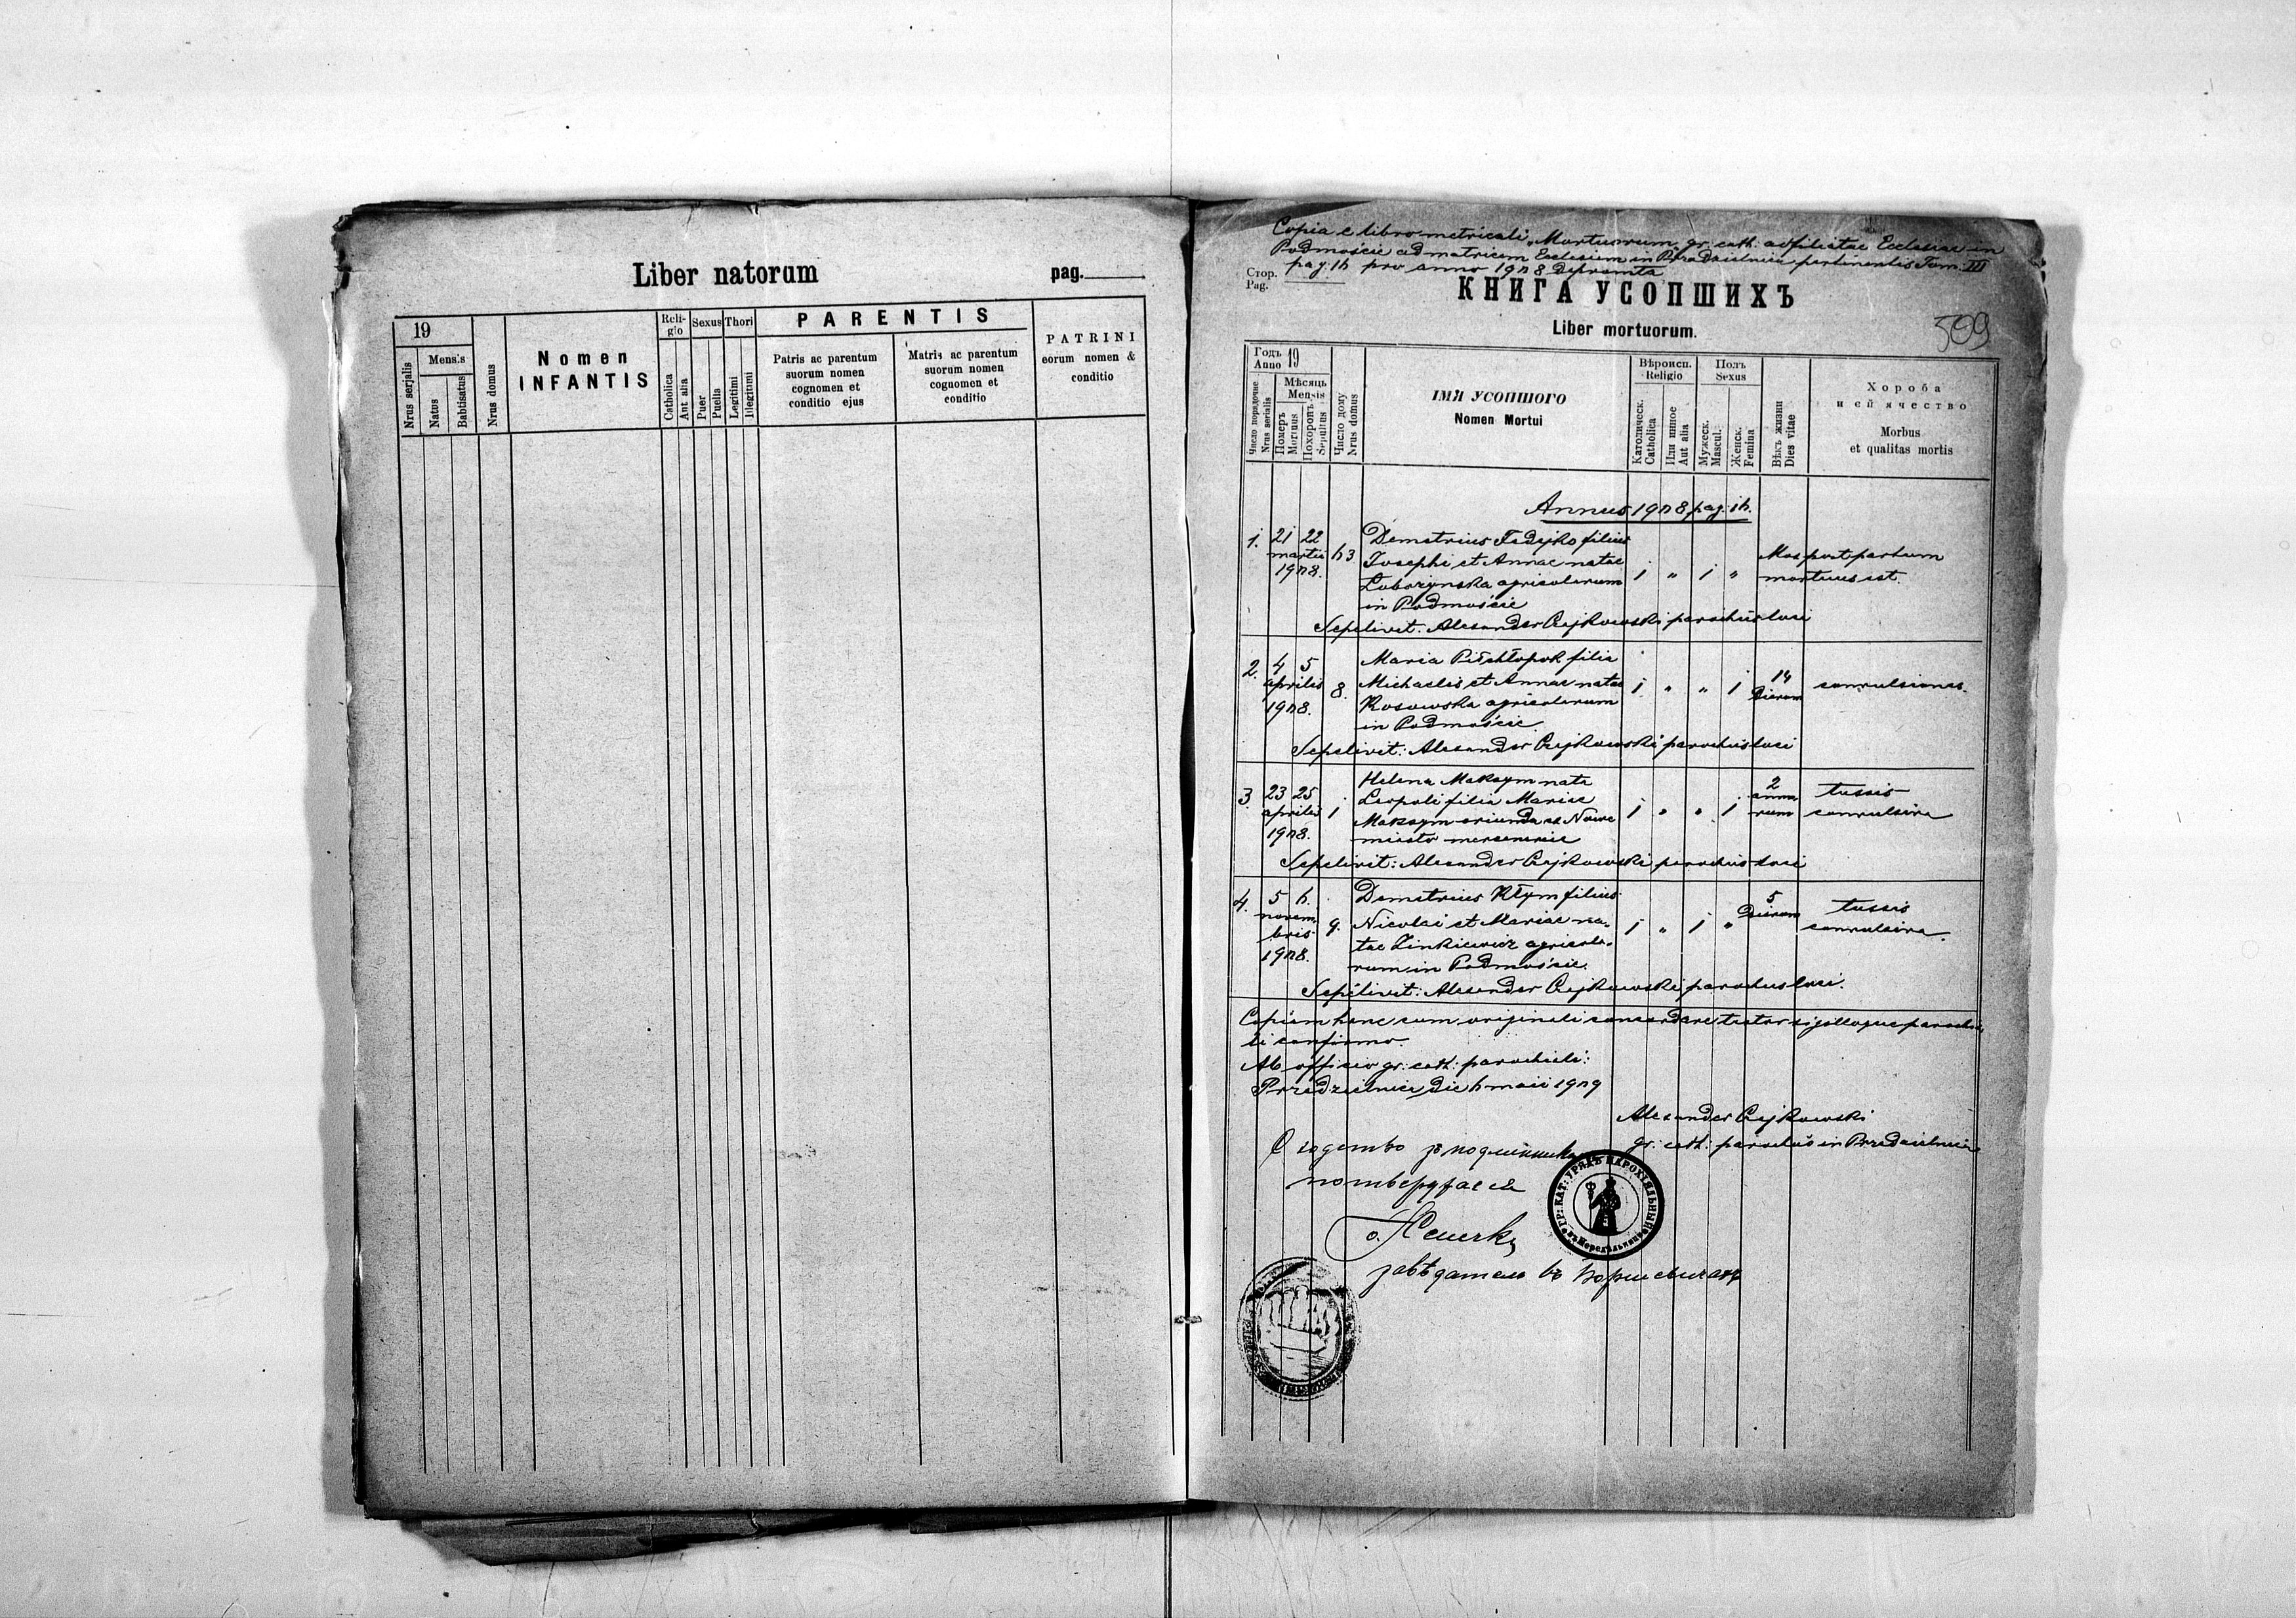 Liber natorum
pag.
19
Mensis
Nrus serjalis
Natus
Babtisatus
Nrus domus
Nomen
INFANTIS
Reli-
gio
Catholica
Aut alia
Sexus
Puer
Puella
Thori
Legitimi
Illegitimi
PARENTIS
Patris ac parentum
suorum nomen
cognomen et
conditio ejus
Matris ac parentum
suorum nomen
cognomen et
conditio
PATRINI
eorum nomen &
conditio
Copia e libro metricali „Mortuorum" gr. cath. adfiliatae Ecclesiae in
Podmoście ad matricem Ecclesiam in Przedzielnica pertinentis Tom. III
Стор.
Pag.
pag. 16 pro anno 1908 depromta
КНИГА УСОПШИХЪ
Liber mortuorum.
509
Годъ
Anno 19
Число порядочне
Nrus serialis
Мѣсяць
Mensis
Померъ
Mortuus
Похоронъ
Sepultus
Число дому
Nrus domus
ІМЯ УСОПШОГО
Nomen Mortui
Вѣроисп.
Religio
Католическ.
Catholica
Или иное
Aut alia
Полъ
Sexus
Мужеск.
Mascul.
Женск.
Femina
Вѣкъ жизни
Dies vitae
Хороба
и ей ячество
Morbus
et qualitas mortis
Annus 1908 pag. 16.
1. 21 22 martii 1908. 63
Demetrius Fedejko filius
Josephi et Annae natae
agricolarum
in Podmoście
1 „ 1 „
Mox post partum
mortuus est.
Sepelivit: Alexander Czajkowski parochus loci
2. 4 5 aprilis 1908. 8.
Maria filia
Michaelis et Annae natae
Kosowska agricolarum
in Podmoście
1 „ „ 1
14 dierum
convulsiones.
Sepelivit: Alexander Czajkowski parochus loci
3. 23 25 aprilis 1908. 1
Helena Maksym nata
Leopoli filia Mariae
Maksym oriunda ex Nowe
miasto mercenariae
1 „ „ 1
2 annorum
tussis
convulsiva
Sepelivit: Alexander Czajkowski parochus loci
4. 5 6. novembris 1908. 9.
Demetrius Kłym filius
Nicolai et Mariae na-
tae Zinkiewicz agricola-
rum in Podmoście.
1 „ 1 „
5 dierum
tussis
convulsiva.
Sepelivit: Alexander Czajkowski parochus loci.
Copiam hanc cum originali concordare testor sigilloque parochia-
li confirmo.
Ab officio gr: cath: parochiali:
Przedzielnica die 6 maii 1909
Alexander Czajkowski
gr: cath: parochus in Przedzielnica
подлинникомъ
потверджае ся
завѣдатель въ
ГР: КАТ: УРЯДЪ ПАРОХІЯЛЬНЫЙ